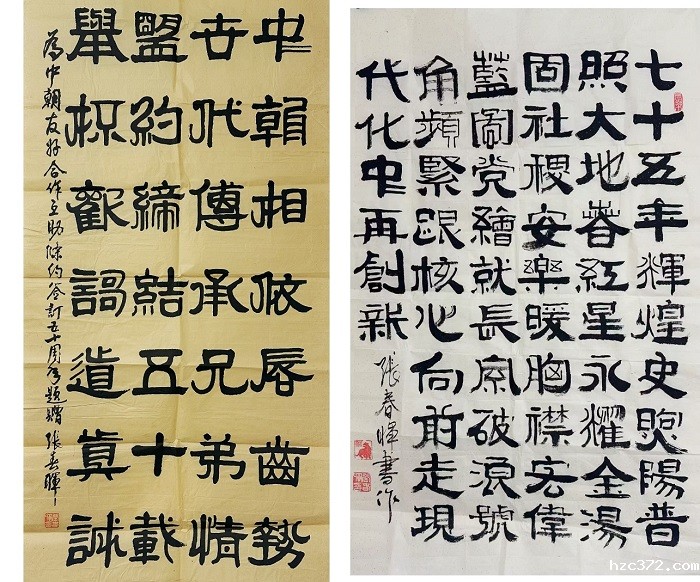 中朝相依唇齒勢
世代傳承兄弟情
盟約締結五十載
舉杯歡謌道真誠
為中朝友好合作互助條約簽訂五十周年題贈 張春暉
七十五年輝煌史煦陽普
照大地春紅星永耀金湯
固社稷安樂暖胸襟宏偉
藍圖党繪就長風破浪號
角頻緊跟核心向前走現
代化中再創新
張春暉書作
hzc372.com